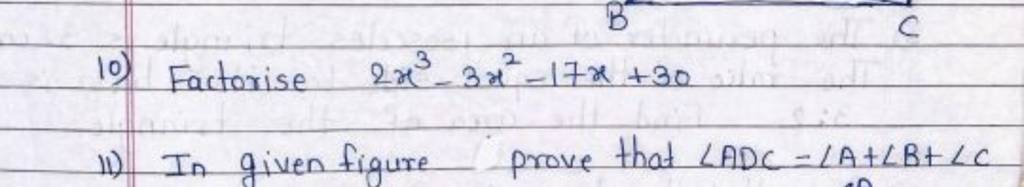 B C
10) Factorise 2x³ - 3x² - 17x + 30
11) In given figure prove that ∠ADC = ∠A + ∠B + ∠C